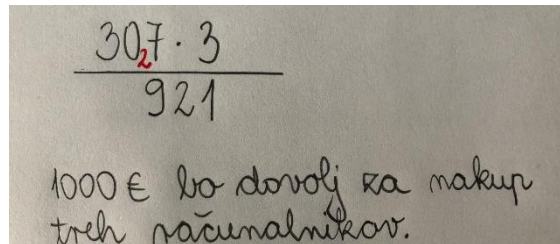 307 · 3
2
921
1000 € bo dovolj za nakup
treh računalnikov.